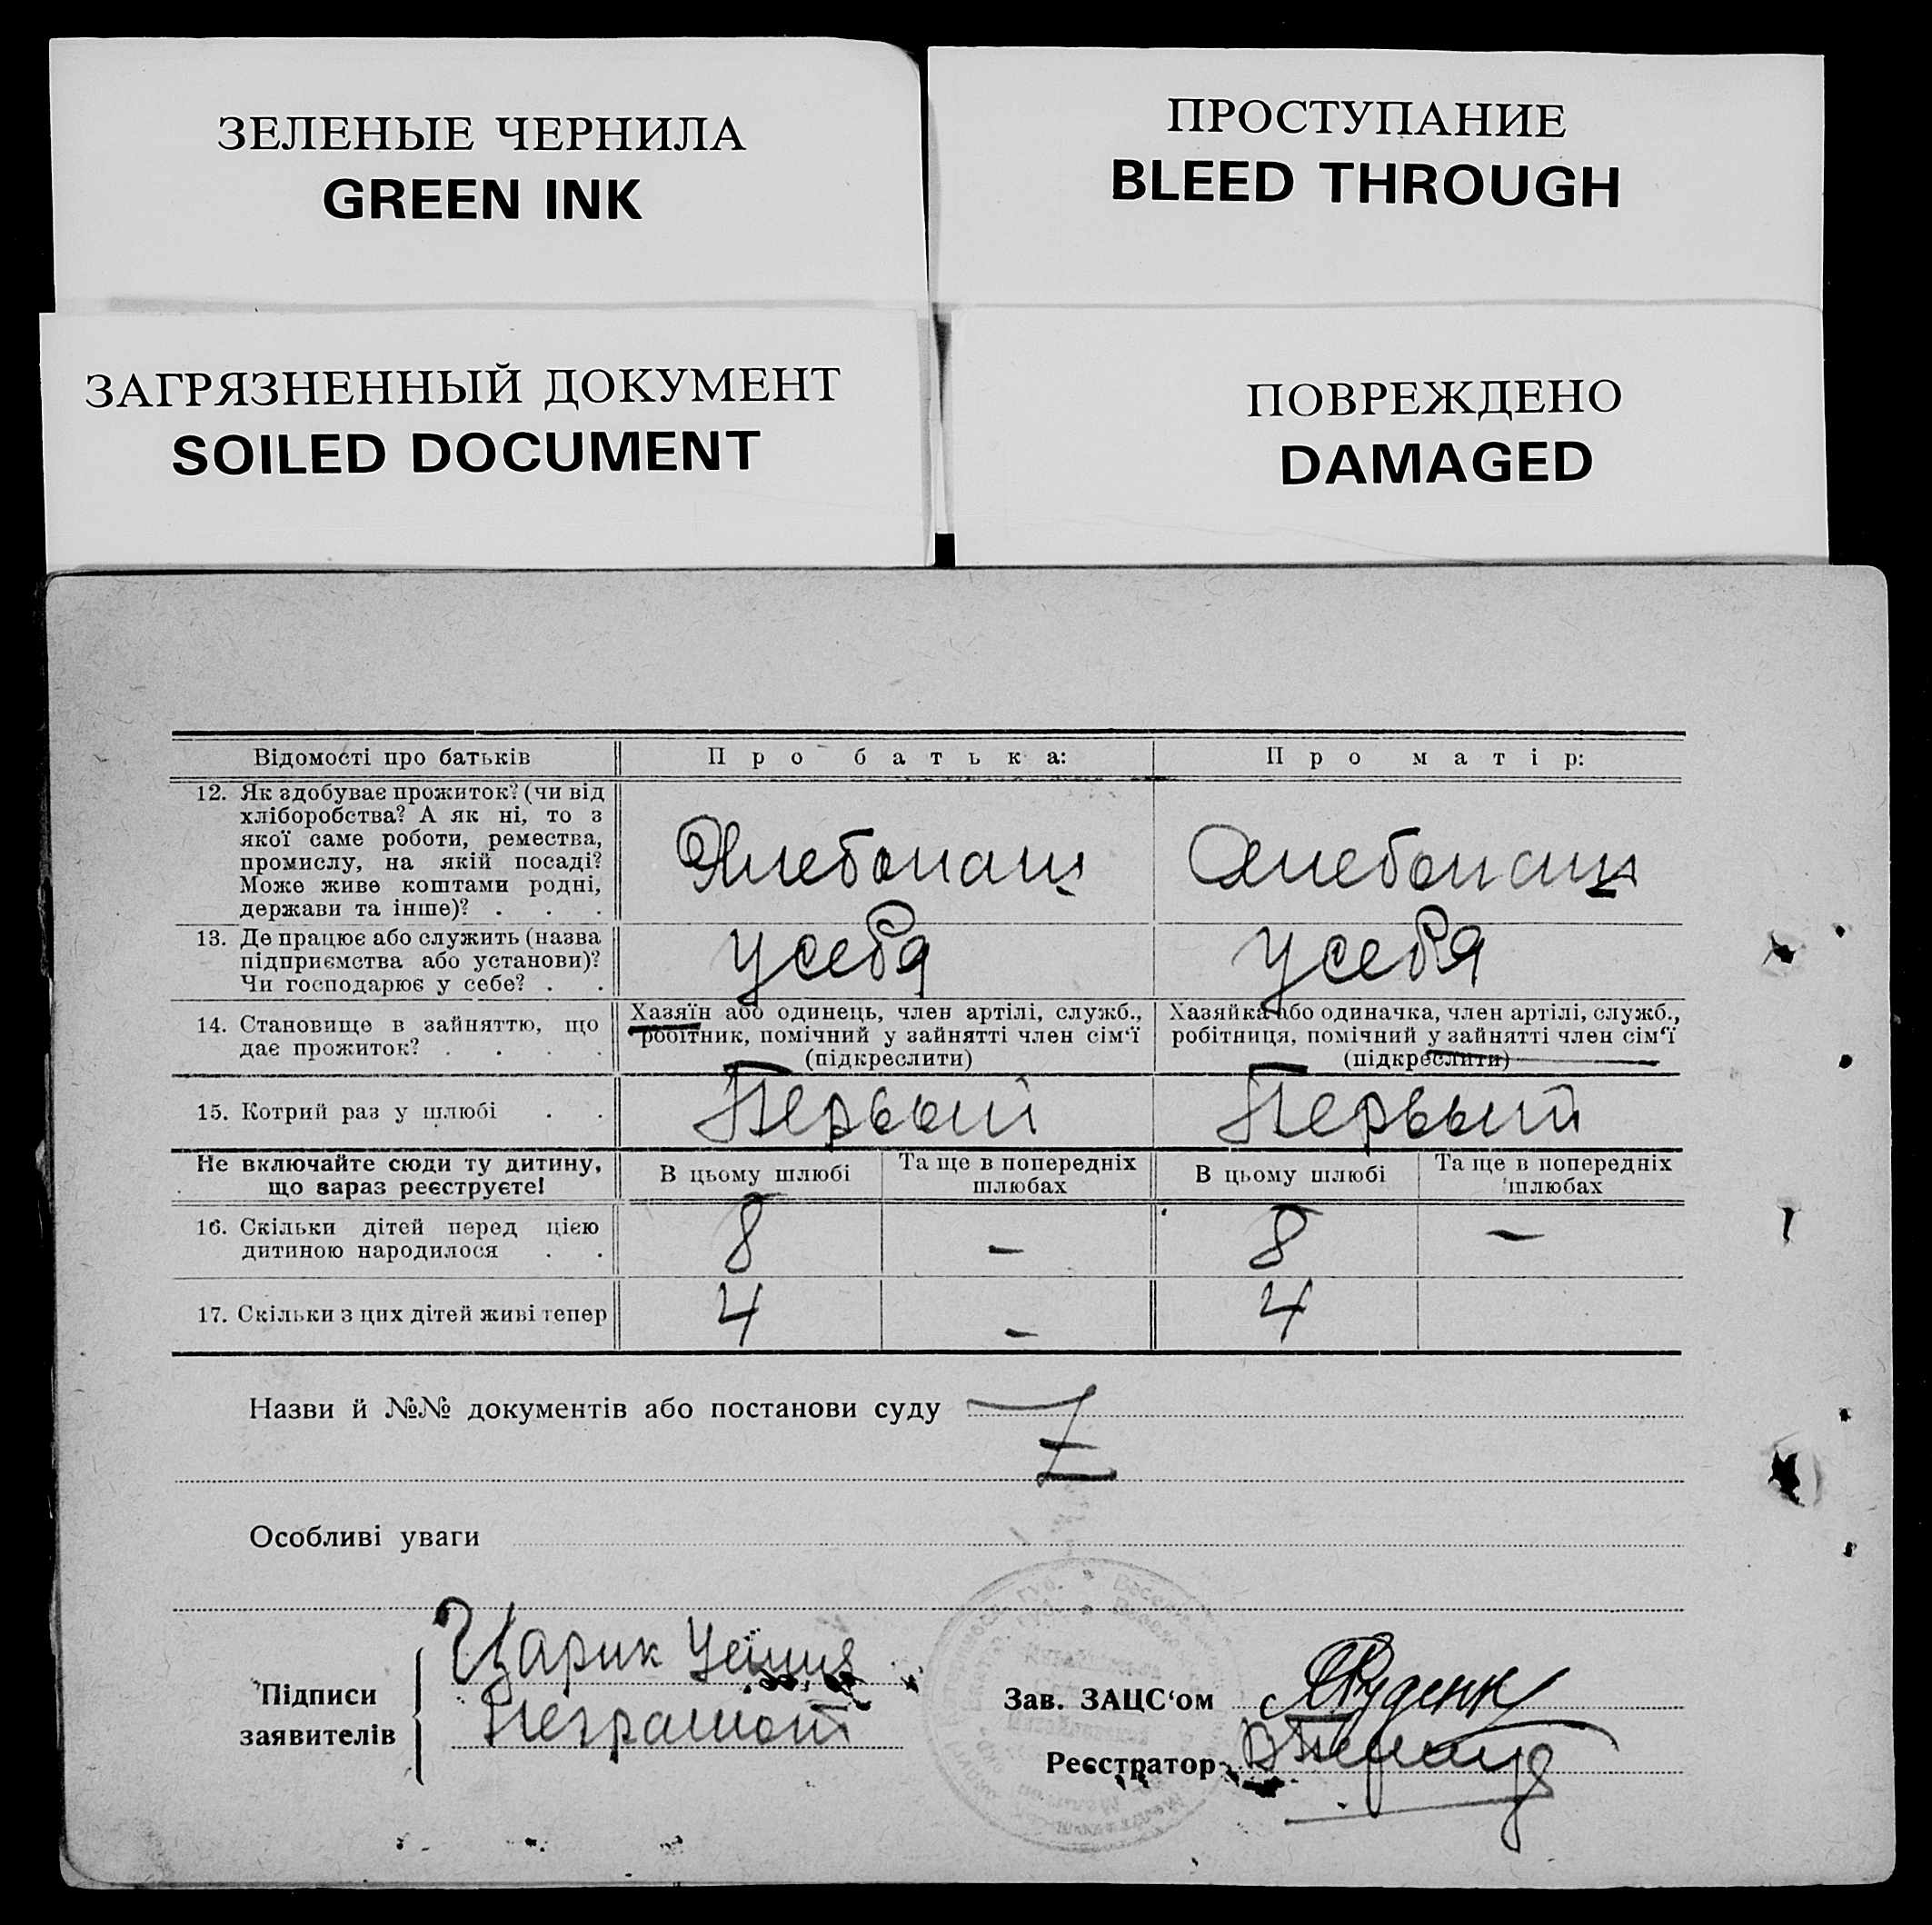 ЗЕЛЕНЫЕ ЧЕРНИЛА
GREEN INK
ПРОСТУПАНИЕ
BLEED THROUGH
ЗАГРЯЗНЕННЫЙ ДОКУМЕНТ
SOILED DOCUMENT
ПОВРЕЖДЕНО
DAMAGED
Відомості про батьків
Про батька:
Про матір:
12. Як здобуває прожиток? (чи від
хліборобства? А як ні, то з
якої саме роботи, ремества,
промислу, на якій посаді?
Може живе коштами родні,
держави та інше)? . . .
Хлебопаш
Хлебопаш
13. Де працює або служить (назва
підприємства або установи)?
Чи господарює у себе? . .
у себя
у себя
14. Становище в зайняттю, що
дає прожиток? . . . .
Хазяїн або одинець, член артілі, служб.,
робітник, помічний у зайнятті член сім'ї
(підкреслити)
Хазяйка або одиначка, член артілі, служб.,
робітниця, помічний у зайнятті член сім'ї
(підкреслити)
15. Котрий раз у шлюбі . .
Первый
Первый
Не включайте сюди ту дитину,
що зараз реєструєте!
В цьому шлюбі
Та ще в попередніх
шлюбах
В цьому шлюбі
Та ще в попередніх
шлюбах
16. Скільки дітей перед цією
дитиною народилося . .
8
–
8
–
17. Скільки з цих дітей живі тепер
4
–
4
Назви й №№ документів або постанови суду
Особливі уваги
Підписи
заявителів
Царик
Неграмот
Зав. ЗАЦС'ом
Реєстратор